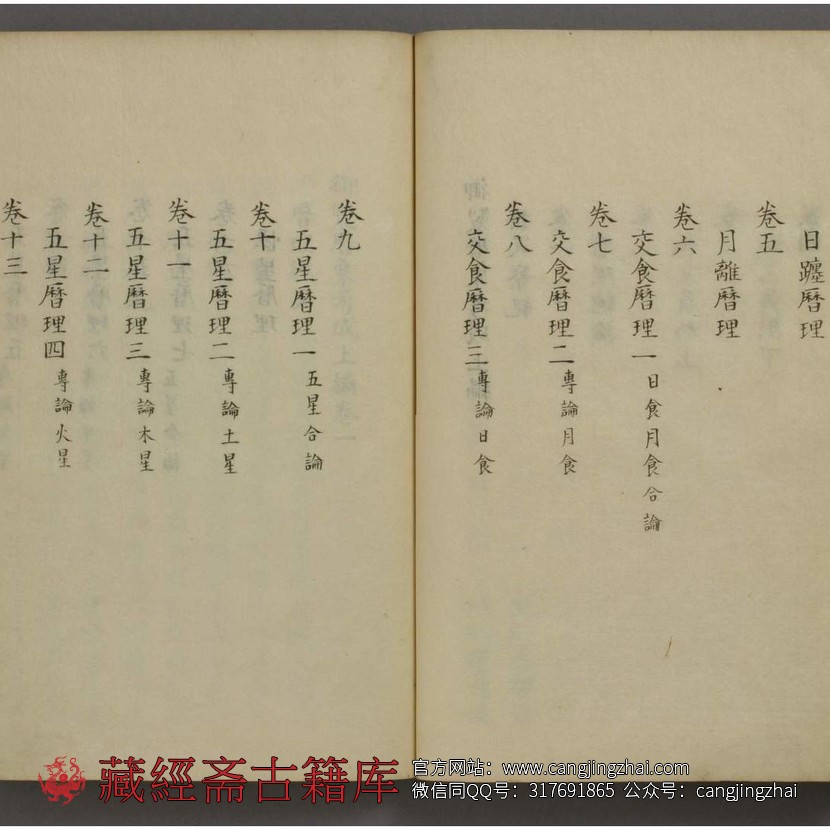 日躔曆理
卷五
月離曆理
卷六
交食曆理一 日食月食合論
卷七
交食曆理二 專論月食
卷八
交食曆理三 專論日食
卷九
五星曆理一 五星合論
卷十
五星曆理二 專論土星
卷十一
五星曆理三 專論木星
卷十二
五星曆理四 專論火星
卷十三
藏經斋古籍库
官方网站：www.cangjingzhai.com
微信同QQ号：317691865 公众号：cangjingzhai